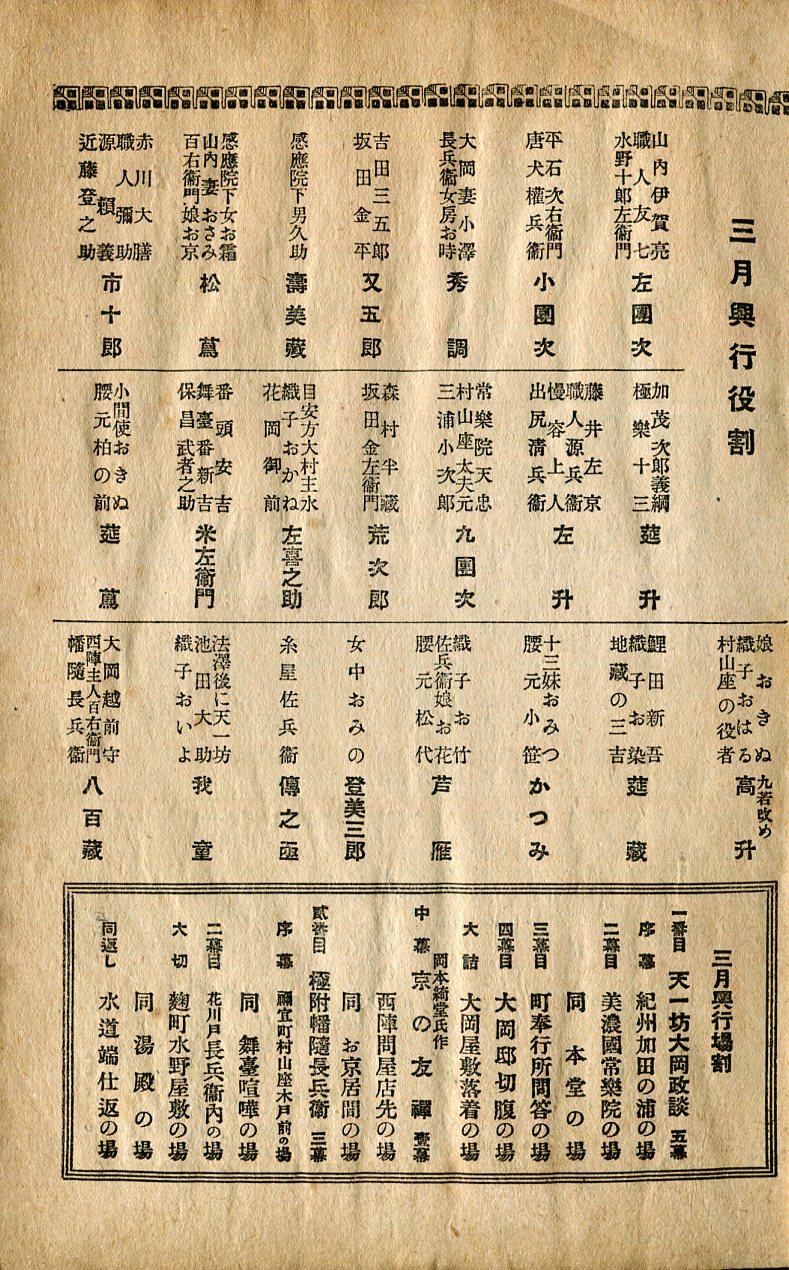 三月興行役割
山内伊賀亮
職人友七
水野十郎左衞門
左團次
平石次右衞門
唐犬權兵衞
小團次
大岡妻小澤
長兵衞女房お時
秀調
吉田三五郎
坂田金平
又五郎
感應院下男久助
壽美藏
感應院下女お霜
山內妻おさみ
百右衞門娘お京
松蔦
赤川大膳
職人彌助
源賴義
近藤登之助
市十郎
加茂次郎義綱
極樂十三
莚升
藤井左京
職人源兵衞
慢容上人
出尻淸兵衞
左升
常樂院天忠
村山座太夫元
三浦小次郎
九團次
森村半藏
坂田金左衞門
荒次郎
目安方大村主水
織子おかね
花岡御前
左喜之助
番頭安吉
舞臺番新吉
保昌武者之助
米左衞門
小間使おきぬ
腰元柏の前
莚蔦
娘おきぬ
織子おはる
村山座の役者
九若改め
高升
鯉田新吾
織子お染
地藏の三吉
莚藏
十三妹おみつ
腰元小笹
かつみ
織子お竹
佐兵衞娘お花
腰元松代
芦雁
女中おみの
登美三郎
糸屋佐兵衞
傳之亟
法澤後に天一坊
池田大助
織子おいよ
我童
大岡越前守
西陣主人百右衞門
幡隨長兵衞
八百藏
三月興行場割
一番目 天一坊大岡政談 五幕
序幕 紀州加田の浦の場
二幕目 美濃國常樂院の場
同本堂の場
三幕目 町奉行所問答の場
四幕目 大岡邸切腹の場
大詰 大岡屋敷落着の場
岡本綺堂氏作
中幕 京の友禪 壹幕
西陣問屋店先の場
同お京居間の場
貳番目 極附幡隨長兵衞 三幕
序幕 禰宜町村山座木戸前の場
同舞臺喧嘩の場
二幕目 花川戸長兵衞内の場
大切 麴町水野屋敷の場
同湯殿の場
同返し 水道端仕返の場